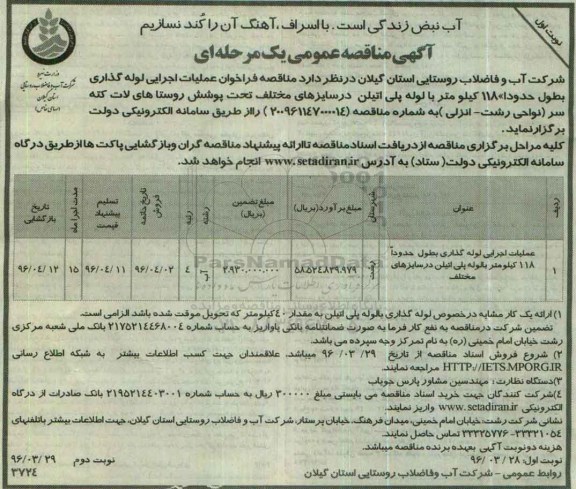 نوبت اول
آب نبض زندگی است. با اسراف، آهنگ آن را کُند نسازیم
آگهی مناقصه عمومی یک مرحله ای
شرکت آب و فاضلاب روستایی استان گیلان
شرکت آب و فاضلاب روستایی استان گیلان درنظر دارد مناقصه فراخوان عملیات اجرایی لوله گذاری
بطول حدودا ۱۱۸ کیلو متر با لوله پلی اتیلن درسایزهای مختلف تحت پوشش روستا های لات کته
سر (نواحی رشت- انزلی) به شماره مناقصه (۲۰۰۹۶۱۱۴۷۰۰۰۰۱۴) را از طریق سامانه الکترونیکی دولت
برگزار نماید.
کلیه مراحل برگزاری مناقصه از دریافت اسناد مناقصه تا ارائه پیشنهاد مناقصه گران و بازگشایی پاکت ها از طریق درگاه
سامانه الکترونیکی دولت (ستاد) به آدرس www.setadiran.ir انجام خواهد شد.
ردیف عنوان شهرستان مبلغ برآورد(بریال) مبلغ تضمین (بریال) رشته رتبه تاریخ خاتمه فروش تسلیم پیشنهاد قیمت مدت اجرا ماه تاریخ بازگشایی
۱ عملیات اجرایی لوله گذاری بطول حدوداً ۱۱۸ کیلومتر بالوله پلی اتیلن درسایزهای مختلف رشت ۵۸.۵۲۴.۸۳۹.۹۷۹ ۲.۹۳۰.۰۰۰.۰۰۰ آب ۴ ۹۶/۰۴/۰۲ ۹۶/۰۴/۱۱ ۱۵ ۹۶/۰۴/۱۲
ParsNamadData
۱) ارائه یک کار مشابه درخصوص لوله گذاری بالوله پلی اتیلن به مقدار ۴۰ کیلومتر که تحویل موقت شده باشد الزامی است.
تضمین شرکت درمناقصه به نفع کار فرما به صورت ضمانتنامه بانکی یا واریز به حساب شماره ۲۱۷۵۲۱۴۴۶۸۰۰۴ بانک ملی شعبه مرکزی
رشت خیابان امام خمینی (ره) به نام تمرکز وجوه سپرده می باشد.
۲) شروع فروش اسناد مناقصه از تاریخ ۲۹/ ۰۳/ ۹۶ میباشد. علاقمندان جهت کسب اطلاعات بیشتر به شبکه اطلاع رسانی
HTTP://IETS.MPORG.IR مراجعه نمایند.
۳)دستگاه نظارت : مهندسین مشاور پارس جویاب
۴)شرکت کنندگان جهت خرید اسناد مناقصه می بایستی مبلغ ۳۰۰۰۰۰ ریال به حساب شماره ۲۱۹۵۲۱۴۴۰۳۰۰۱ بانک صادرات از درگاه
الکترونیکی www.setadiran.ir واریز نمایند.
نشانی شرکت رشت: خیابان امام خمینی، میدان فرهنگ، خیابان پرستار، شرکت آب و فاضلاب روستایی استان گیلان، جهت اطلاعات بیشتر باتلفنهای
۳۳۳۲۱۰۵۴-۳۳۳۲۵۷۷۶ تماس حاصل نمایند.
هزینه دو نوبت آگهی بعهده برنده مناقصه میباشد.
نوبت اول: ۲۸/ ۰۳/ ۹۶ نوبت دوم ۹۶/۰۳/۲۹
روابط عمومی - شرکت آب و فاضلاب روستایی استان گیلان ۳۷۲۴